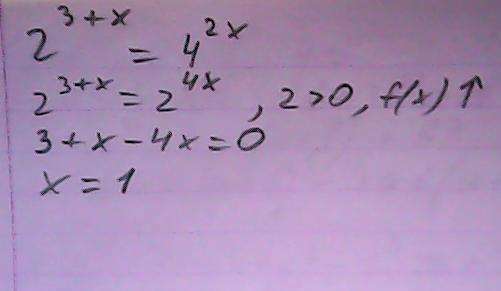 2^{3+x} = 4^{2x}
2^{3+x} = 2^{4x}, 2>0, f(x)↑
3+x-4x=0
x=1